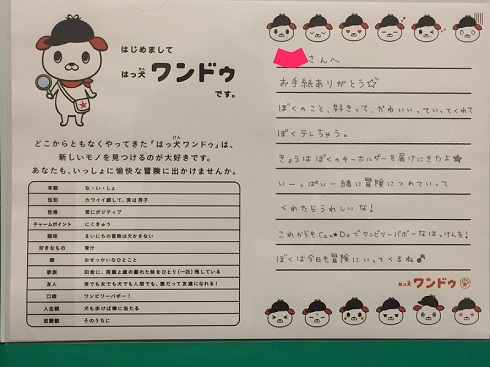 はじめまして
はっ犬 ワンドゥ
けん
です。
どこからともなくやってきた「はっ犬ワンドゥ」は、
けん
新しいモノを見つけるのが大好きです。
あなたも、いっしょに愉快な冒険に出かけませんか。
年齢 な・い・しょ
性別 カワイイ顔して、実は男子
性格 常にポジティブ
チャームポイント にくきゅう
趣味 まいにちの冒険は欠かさない
好きなもの 青汁
癖 おせっかいなひとこと
家族 田舎に、両親と歳の離れた妹をひとり(一匹)残している
友人 誰でも友でも犬でも人間でも、誰だって友達になれる!
口癖 ワンビリーバボー!
人生観 犬も歩けば棒に当たる
恋愛観 そのうちに
さんへ
お手紙ありがとう☆
ぼくのこと、好きって、かわいいっていってくれて
ぼくテレちゃう。
きょうはぼくのキーホルダーを届けにきたよ★
いーっぱい一緒に冒険につれていって
くれたらうれしいな!
これからもCan★Doでワンビリーバボーなはっけんを!
ぼくは今日も冒険にいってくるね♪
はっ犬 ワンドゥ